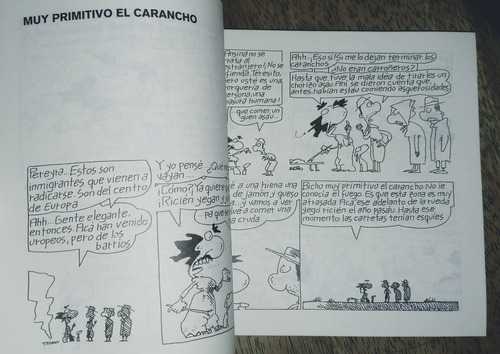 MUY PRIMITIVO EL CARANCHO
Pereyra... Estos son
inmigrantes que vienen a
radicarse. Son del centro
de Europa
Ahh... Gente elegante,
entonces. Acá han venido
uropeos, pero de los
barrios
Y yo pensé... ¿Qué
vayan...
¿Cómo? ¿Ya quere
¡Ricién yegan y
Ansina no se
trata al
estranjero! ¡No se
fienda, Teresito,
pero usté es una
orquería de
persona, una
basura humana!
que comer
un guen asau..
Ahh... ¡Eso sí! Si me lo dejan terminar los
caranchos
¿No eran carroñeros?
Hasta que tuve la mala idea de tirarles un
chorizo asau. Ahí se dieron cuenta que
antes habían estau comiendo asquerosidades
é a una tierra una
de jamón y queso
a... y vamos a ver
lve a comer una
cruda
pa que se
Bicho muy primitivo el carancho. No le
conocía el fuego. Es que esta zona es muy
atrasada. Acá, ese adelanto de la rueda
yegó ricién el año pasáu. Hasta ese
momento las carretas tenían esquíes